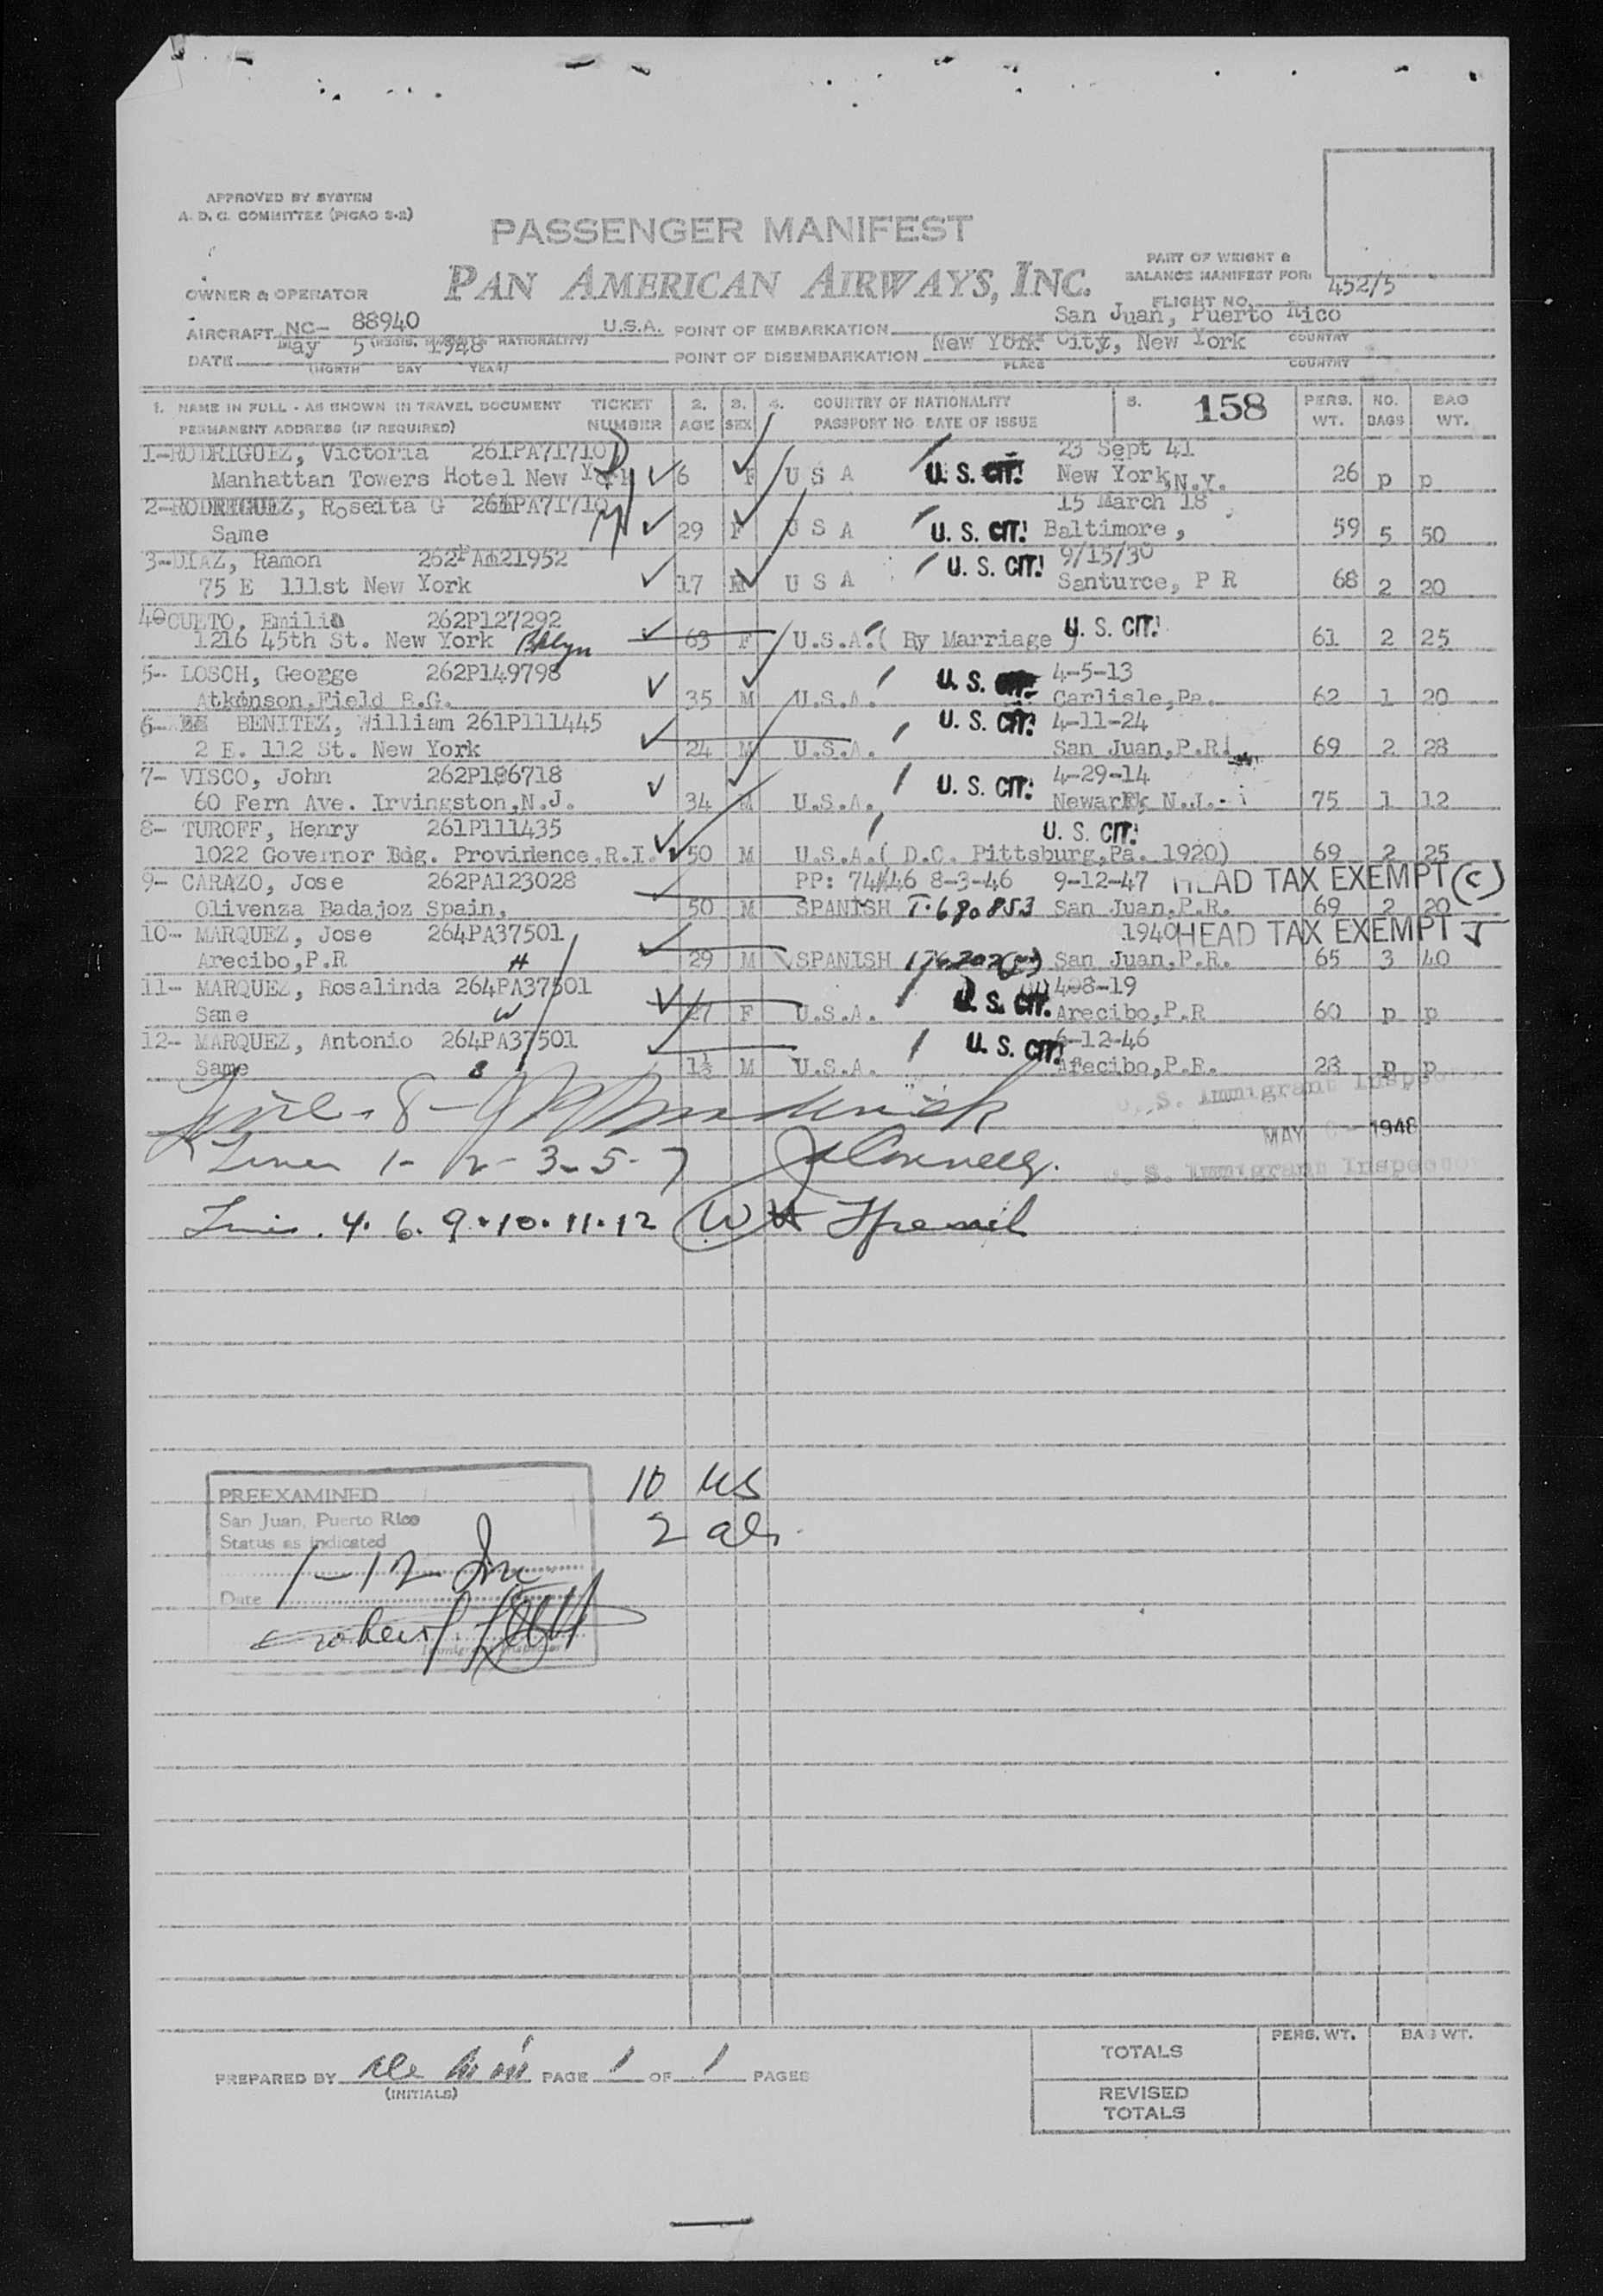 APPROVED BY SYSTEM
A. D. C. COMMITTEE (PICAO S-2)
PASSENGER MANIFEST
PAN AMERICAN AIRWAYS, INC.
PART OF WEIGHT &
BALANCE MANIFEST FOR:
FLIGHT NO. 452/5
OWNER & OPERATOR
AIRCRAFT NC- 88940 U.S.A. POINT OF EMBARKATION San Juan, Puerto Rico
(REGIS. MARKS & NATIONALITY) COUNTRY
DATE May 5 1948 POINT OF DISEMBARKATION New York City, New York
(MONTH DAY YEAR) PLACE COUNTRY
1. NAME IN FULL - AS SHOWN IN TRAVEL DOCUMENT TICKET 2. 3. 4. COUNTRY OF NATIONALITY 5. 158 PERS. NO. BAG
PERMANENT ADDRESS (IF REQUIRED) NUMBER AGE SEX PASSPORT NO DATE OF ISSUE WT. BAGS WT.
1-RODRIGUIZ, Victoria 261PA71710 23 Sept 41
Manhattan Towers Hotel New York 6 F U S A U. S. CIT! New York, N.Y. 26 p p
2-RODRIGUEZ, Roselta G 261PA71710 15 March 18
Same 29 F U S A U. S. CIT! Baltimore, 59 5 50
3-DIAZ, Ramon 262PA121952 9/15/30
75 E 111st New York 17 M U S A U. S. CIT! Santurce, P R 68 2 20
4-CUETO, Emilia 262P127292
1216 45th St. New York Bklyn 63 F U.S.A. ( By Marriage ) U. S. CIT! 61 2 25
5- LOSCH, Geogge 262P149798 U. S. CIT. 4-5-13
Atkonson, Field B.G. 35 M U.S.A. Carlisle, Pa. 62 1 20
6- BENITEZ, William 261P111445 U. S. CIT! 4-11-24
2 E. 112 St. New York 24 M U.S.A. San Juan, P.R. 69 2 28
7- VISCO, John 262P186718 U. S. CIT! 4-29-14
60 Fern Ave. Irvingston, N.J. 34 M U.S.A. Newark, N.J. 75 1 12
8- TUROFF, Henry 261P111435 U. S. CIT!
1022 Governor Bdg. Providence, R.I. 50 M U.S.A. ( D.C. Pittsburg, Pa. 1920) 69 2 25
9- CARAZO, Jose 262PA123028 PP: 74/46 8-3-46 9-12-47 HEAD TAX EXEMPT (C)
Olivenza Badajoz Spain, 50 M SPANISH T-690853 San Juan, P.R. 69 2 20
10- MARQUEZ, Jose 264PA37501 1940 HEAD TAX EXEMPT J
Arecibo, P.R H 29 M SPANISH San Juan, P.R. 65 3 40
11- MARQUEZ, Rosalinda 264PA37501 U. S. CIT. 4-8-19
Same W 27 F U.S.A. Arecibo, P.R 60 p p
12- MARQUEZ, Antonio 264PA37501 U. S. CIT! 6-12-46
Same S 1½ M U.S.A. Arecibo, P.R. 28 p p
U. S. Immigrant Inspector
Line - 8 -
MAY 1948
Lines 1- 2- 3- 5- 7
U. S. Immigrant Inspector
Lines. 4. 6. 9. 10. 11. 12
10 US
2 als.
PREEXAMINED
San Juan, Puerto Rico
Status as indicated
1-12
Date
Immigrant Inspector
PREPARED BY PAGE 1 OF 1 PAGES
(INITIALS)
PERS. WT. BAG WT.
TOTALS
REVISED
TOTALS